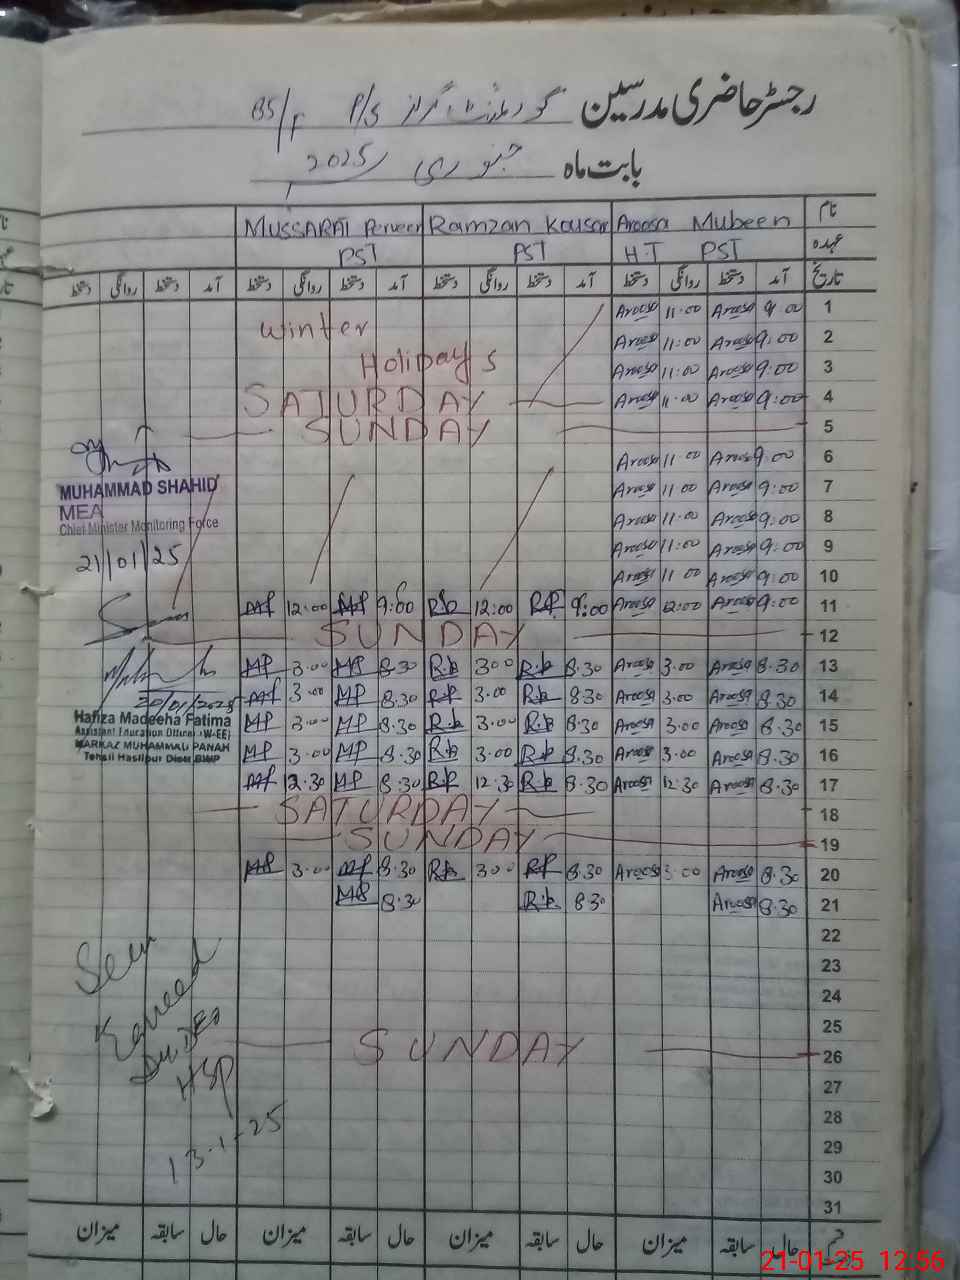 رجسٹر حاضری مدرسین گورنمنٹ گرلز P/S 85/F
بابت ماہ جنوری 2025
نام Aroosa Mubeen Ramzan Kousar MUSSARAT Perveen
عہدہ H.T PST PST PST
تاریخ آمد دستخط روانگی دستخط آمد دستخط روانگی دستخط آمد دستخط روانگی دستخط آمد دستخط روانگی دستخط
1 9.00 Aroosa 11.00 Aroosa
Winter
2 9:00 Aroosa 11:00 Aroosa
Holidays
3 9:00 Aroosa 11:00 Aroosa
4 9:00 Aroosa 11:00 Aroosa SATURDAY
5 SUNDAY
6 9:00 Aroosa 11 00 Aroosa
7 9:00 Aroosa 11 00 Aroosa
8 9:00 Aroosa 11:00 Aroosa
9 9:00 Aroosa 11:00 Aroosa
10 9:00 Aroosa 11 00 Aroosa
11 9:00 Aroosa 12:00 Aroosa 9:00 R.k 12:00 R.k 9:00 MP 12:00 MP
12 SUNDAY
13 8.30 Aroosa 3.00 Aroosa 8.30 R.k 3 00 R.k 8.30 MP 3.00 MP
14 8.30 Aroosa 3.00 Aroosa 8.30 R.k 3.00 R.k 8.30 MP 3.00 MP
15 8.30 Aroosa 3.00 Aroosa 8.30 R.k 3.00 R.k 8.30 MP 3.00 MP
16 8.30 Aroosa 3.00 Aroosa 8.30 R.k 3.00 R.k 8.30 MP 3.00 MP
17 8.30 Aroosa 12.30 Aroosa 8.30 R.k 12.30 R.k 8.30 MP 12.30 MP
18 SATURDAY
19 SUNDAY
20 8.30 Aroosa 3.00 Aroosa 8.30 R.k 3.00 R.k 8.30 MP 3.00 MP
21 8.30 Aroosa 8.30 R.k 8.30 MP
22
23
24
25
26 SUNDAY
27
28
29
30
31
حال سابقہ میزان حال سابقہ میزان حال سابقہ میزان حال سابقہ میزان
MUHAMMAD SHAHID
MEA
Chief Minister Monitoring Force
21/01/25
20/01/2025
Hafiza Madeeha Fatima
Assistant Education Officer (W-EE)
MARKAZ MUHAMMAD PANAH
Tehsil Hasilpur Distt BWP
Seen
HSP
13-1-25
21-01-25 12:56